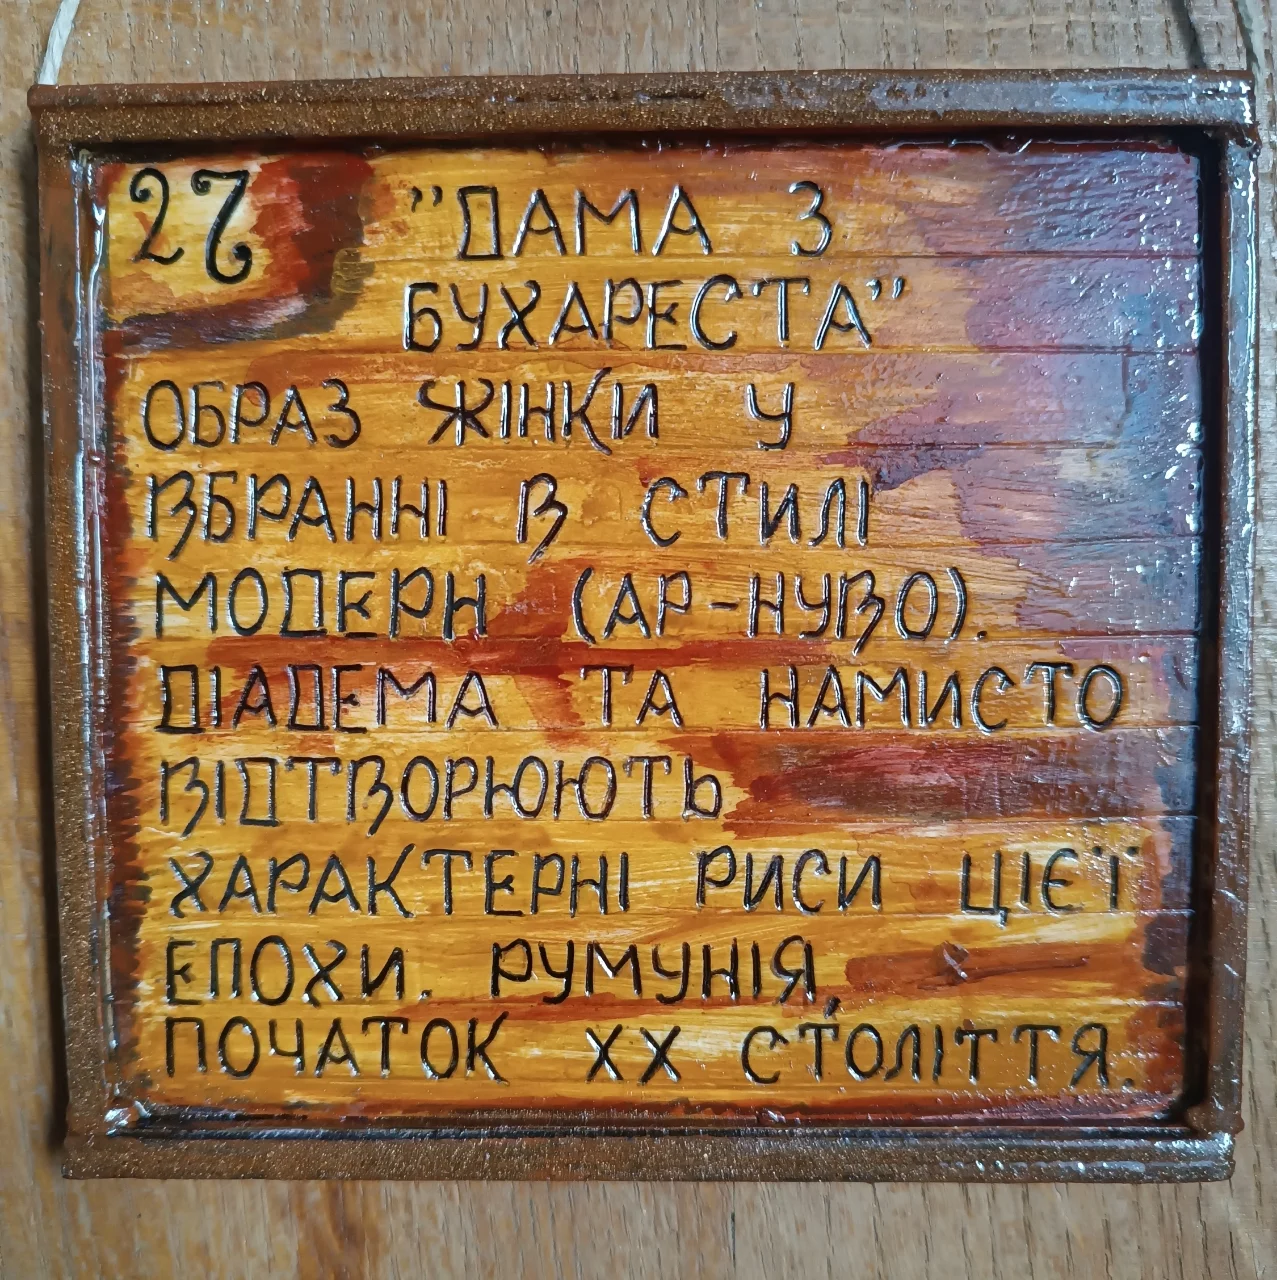 27 "ДАМА З
БУХАРЕСТА"
ОБРАЗ ЖІНКИ У
ВБРАННІ В СТИЛІ
МОДЕРН (АР-НУВО).
ДІАДЕМА ТА НАМИСТО
ВІДТВОРЮЮТЬ
ХАРАКТЕРНІ РИСИ ЦІЄЇ
ЕПОХИ. РУМУНІЯ,
ПОЧАТОК ХХ СТОЛІТТЯ.